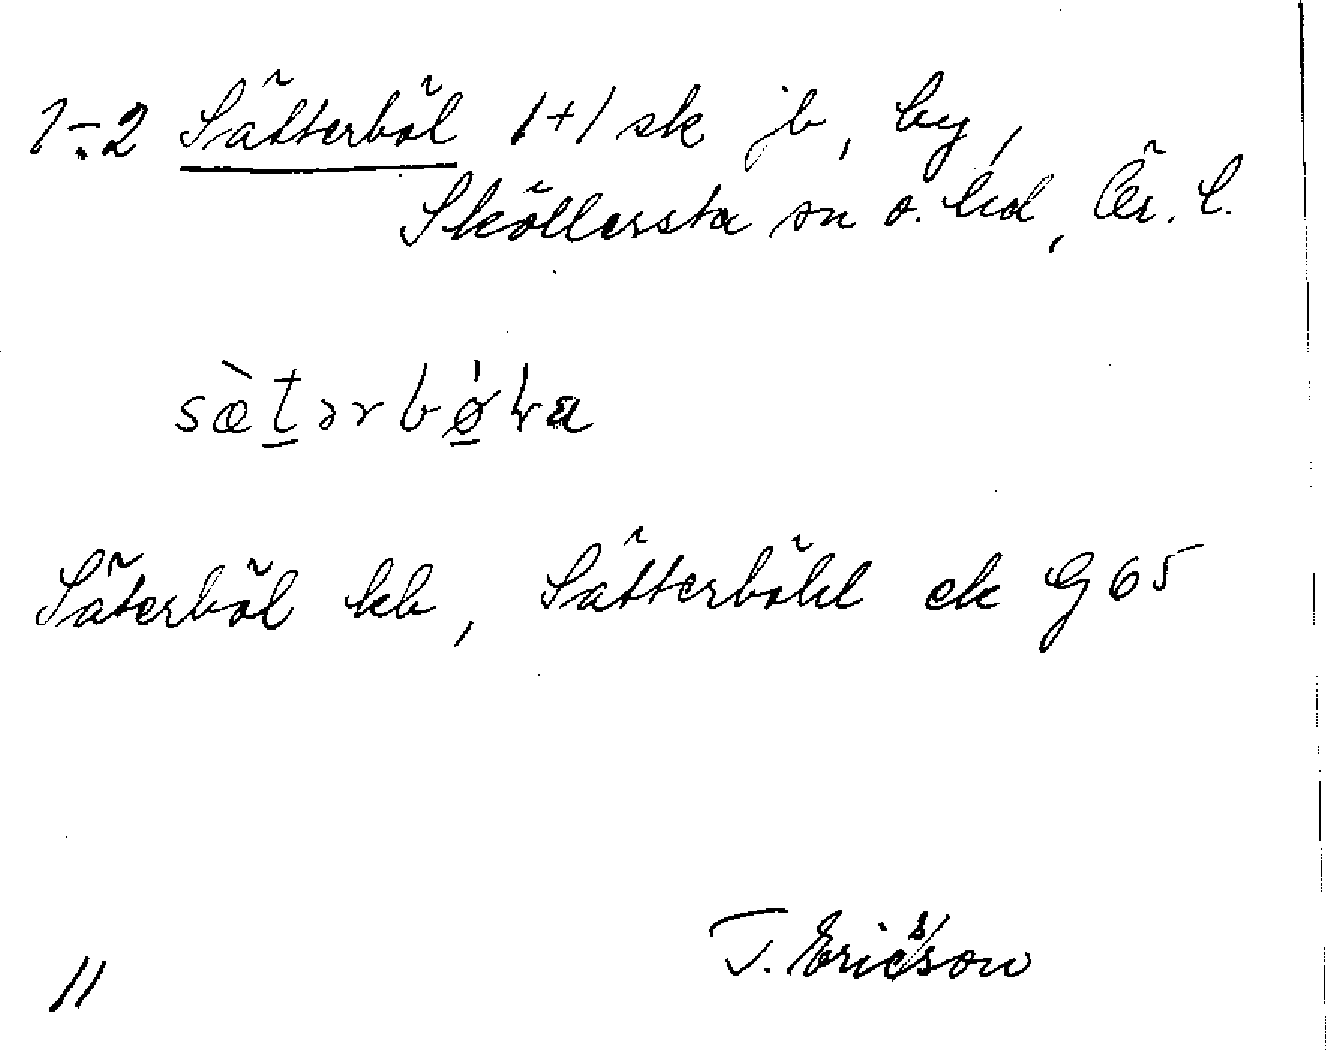 1-2 Sätterböl 1+1 sk jb, by,
Sköllersta sn o. hd, Ör. l.
sæ̀t̲ərbǿ̲ɫa
Säterböl kb, Sätterböhl ek G65
T. Ericsson
11